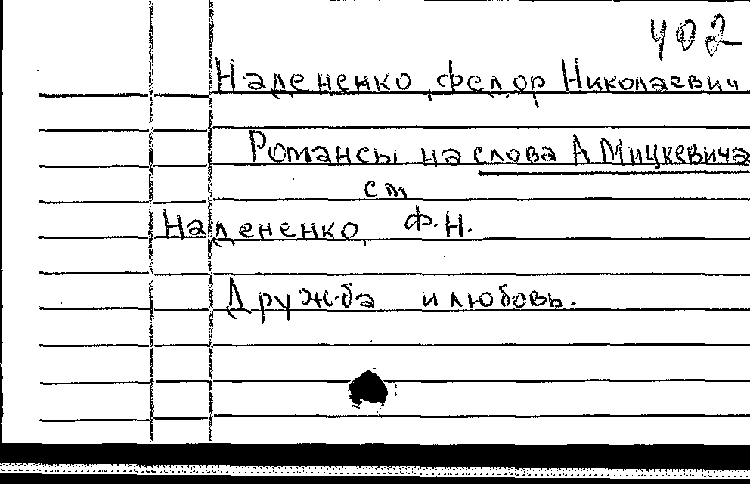 402
Надененко Федор Николаевич
Романсы на слова А Мицкевича
см
Надененко Ф.Н.
Дружба и любовь.